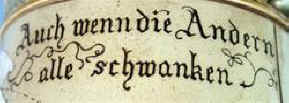 Auch wenn die Andern
alle schwanken